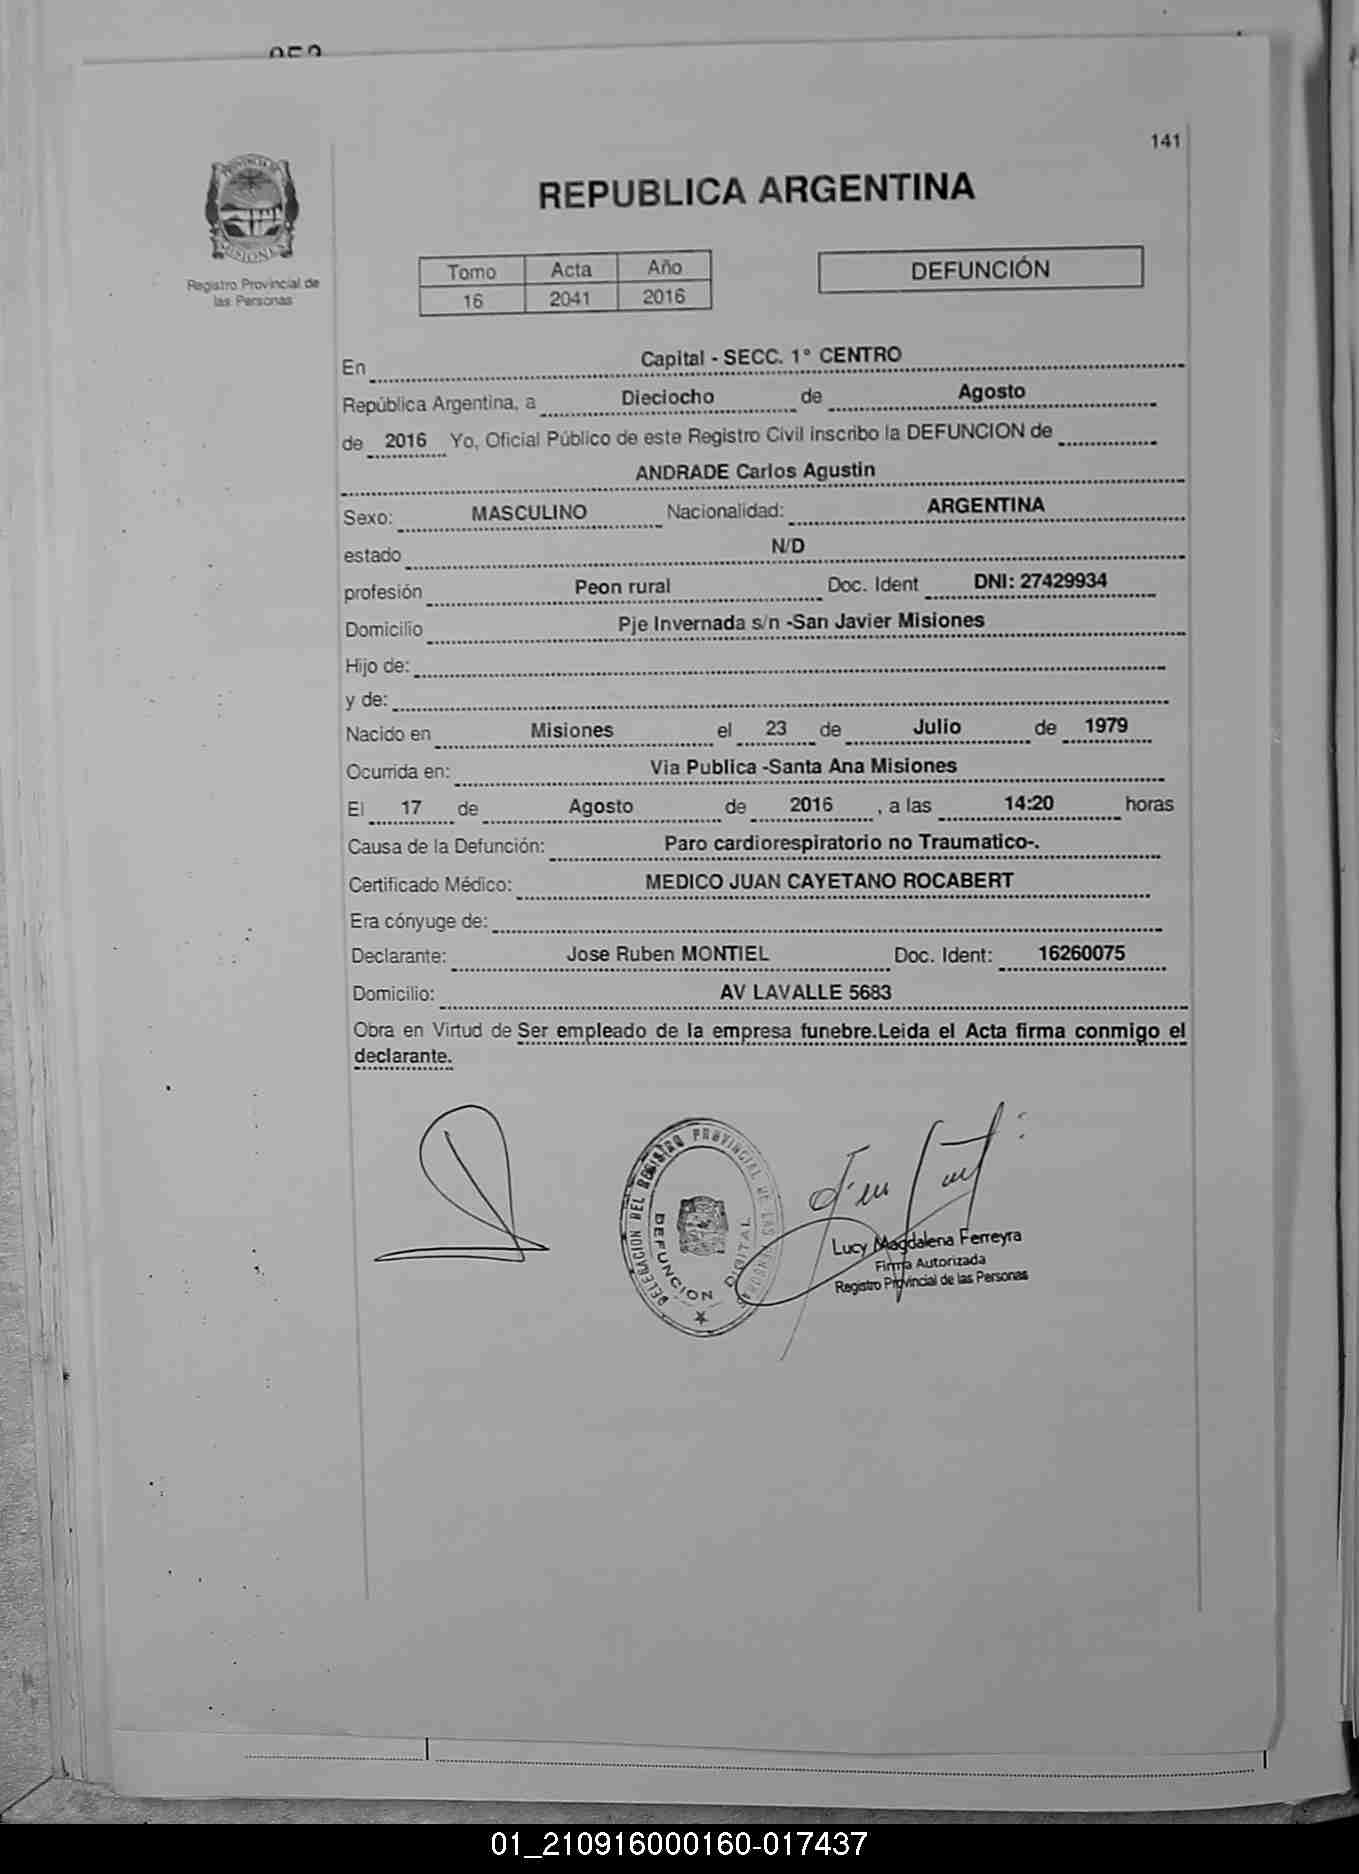 141
PROVINCIA DE
MISIONES
Registro Provincial de
las Personas
REPUBLICA ARGENTINA
Tomo Acta Año
16 2041 2016
DEFUNCIÓN
En Capital - SECC. 1° CENTRO
República Argentina, a Dieciocho de Agosto
de 2016 Yo, Oficial Público de este Registro Civil inscribo la DEFUNCION de
ANDRADE Carlos Agustin
Sexo: MASCULINO Nacionalidad: ARGENTINA
estado N/D
profesión Peon rural Doc. Ident DNI: 27429934
Domicilio Pje Invernada s/n -San Javier Misiones
Hijo de:
y de:
Nacido en Misiones el 23 de Julio de 1979
Ocurrida en: Via Publica -Santa Ana Misiones
El 17 de Agosto de 2016 , a las 14:20 horas
Causa de la Defunción: Paro cardiorespiratorio no Traumatico-.
Certificado Médico: MEDICO JUAN CAYETANO ROCABERT
Era cónyuge de:
Declarante: Jose Ruben MONTIEL Doc. Ident: 16260075
Domicilio: AV LAVALLE 5683
Obra en Virtud de Ser empleado de la empresa funebre.Leida el Acta firma conmigo el
declarante.
DELEGACION DEL REGISTRO PROVINCIAL DE LAS PERSONAS
DEFUNCION DIGITAL
Lucy Magdalena Ferreyra
Firma Autorizada
Registro Provincial de las Personas
01_210916000160-017437